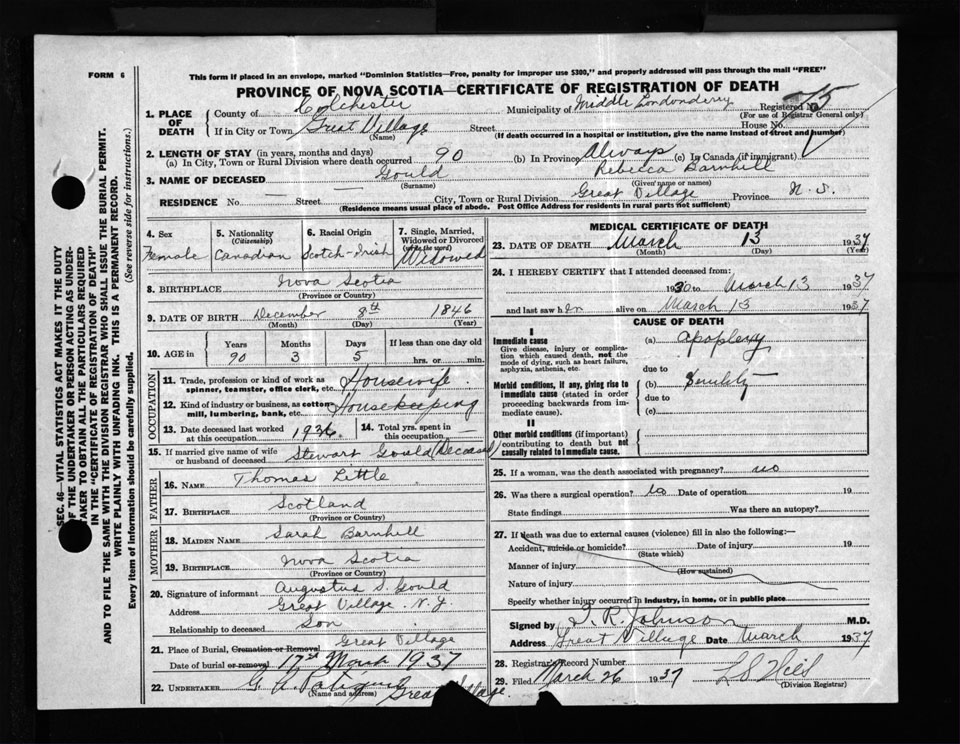 FORM 6
This form if placed in an envelope, marked "Dominion Statistics—Free, penalty for improper use $300," and properly addressed will pass through the mail "FREE"
PROVINCE OF NOVA SCOTIA—CERTIFICATE OF REGISTRATION OF DEATH
1. PLACE OF DEATH
County of Colchester Municipality of Middle Londonderry Registered No.
(For use of Registrar General only)
If in City or Town Great Village Street House No.
(Name) (If death occurred in a hospital or institution, give the name instead of street and number)
2. LENGTH OF STAY (in years, months and days)
(a) In City, Town or Rural Division where death occurred 90 (b) In Province Always (c) In Canada (if immigrant)
3. NAME OF DECEASED Gould Rebecca Barnhill
(Surname) (Given name or names)
RESIDENCE No. — Street — City, Town or Rural Division Great Village Province N. S.
(Residence means usual place of abode. Post Office Address for residents in rural parts not sufficient)
4. Sex
Female
5. Nationality
(Citizenship)
Canadian
6. Racial Origin
Scotch-Irish
7. Single, Married, Widowed or Divorced
(write the word)
Widowed
8. BIRTHPLACE Nova Scotia
(Province or Country)
9. DATE OF BIRTH December 8th 1846
(Month) (Day) (Year)
10. AGE in
Years Months Days If less than one day old
90 3 5 hrs. or min.
OCCUPATION
11. Trade, profession or kind of work as spinner, teamster, office clerk, etc. Housewife.
12. Kind of industry or business, as cotton mill, lumbering, bank, etc. Housekeeping
13. Date deceased last worked at this occupation 1936. 14. Total yrs. spent in this occupation —
15. If married give name of wife or husband of deceased Stewart Gould (Deceased)
FATHER
16. NAME Thomas Little
17. BIRTHPLACE Scotland
(Province or Country)
MOTHER
18. MAIDEN NAME Sarah Barnhill
19. BIRTHPLACE Nova Scotia
(Province or Country)
20. Signature of informant Augustus S. Gould
Address Great Village. N.S.
Relationship to deceased Son
21. Place of Burial, Cremation or Removal Great Village
Date of burial or removal 17th March 1937
22. UNDERTAKER Great Village.
(Name and address)
MEDICAL CERTIFICATE OF DEATH
23. DATE OF DEATH March 13 1937
(Month) (Day) (Year)
24. I HEREBY CERTIFY that I attended deceased from:
1930 to March 13 1937
and last saw her alive on March 13 1937
CAUSE OF DEATH
I
Immediate cause
Give disease, injury or complication which caused death, not the mode of dying, such as heart failure, asphyxia, asthenia, etc.
(a) apoplexy
due to
Morbid conditions, if any, giving rise to immediate cause (stated in order proceeding backwards from immediate cause).
(b) Senility
due to
(c)
II
Other morbid conditions (if important) contributing to death but not causally related to immediate cause.
25. If a woman, was the death associated with pregnancy? no
26. Was there a surgical operation? no Date of operation 19
State findings Was there an autopsy?
27. If death was due to external causes (violence) fill in also the following:—
Accident, suicide or homicide? Date of injury 19
(State which)
Manner of injury
(How sustained)
Nature of injury
Specify whether injury occurred in industry, in home, or in public place
Signed by T. R. Johnson M.D.
Address Great Village Date March 1937
28. Registrar's Record Number
29. Filed March 26 1937
(Division Registrar)
SEC. 46—VITAL STATISTICS ACT MAKES IT THE DUTY
OF THE UNDERTAKER OR PERSON ACTING AS UNDERTAKER TO OBTAIN ALL THE PARTICULARS REQUIRED
IN THE "CERTIFICATE OF REGISTRATION OF DEATH"
AND TO FILE THE SAME WITH THE DIVISION REGISTRAR WHO SHALL ISSUE THE BURIAL PERMIT.
WRITE PLAINLY WITH UNFADING INK. THIS IS A PERMANENT RECORD.
Every item of information should be carefully supplied. (See reverse side for instructions.)